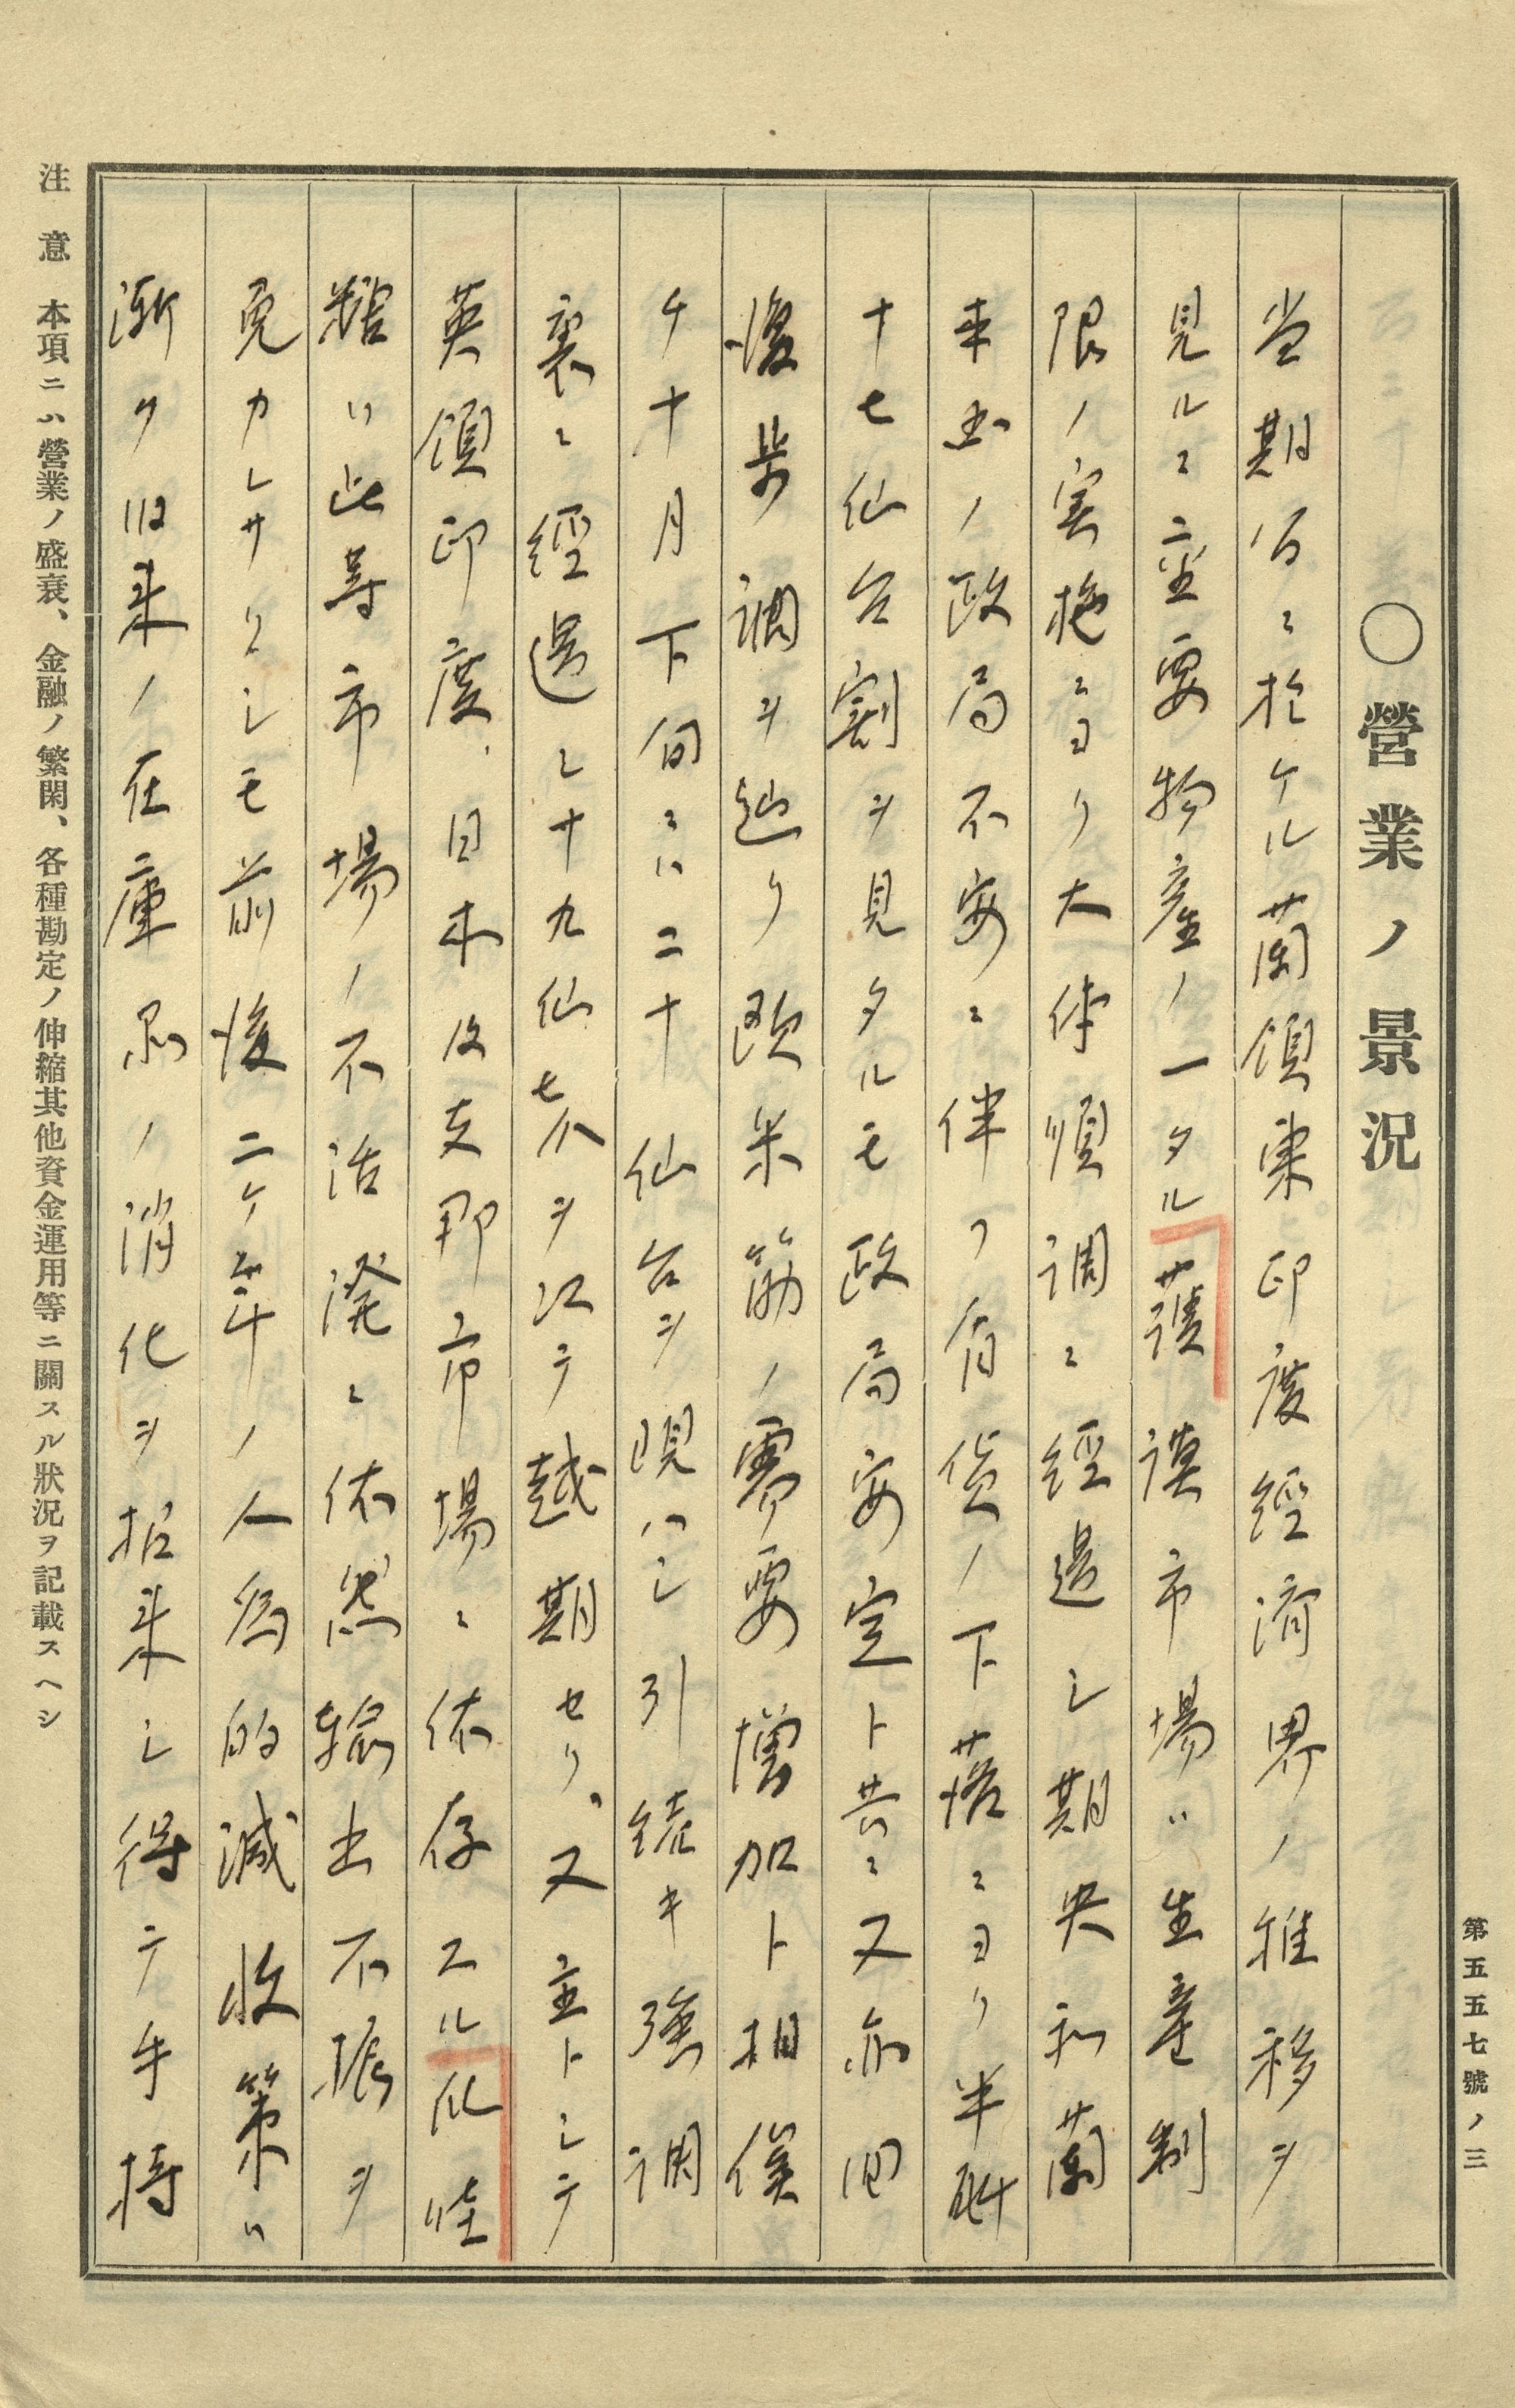 第五五七號ノ三
〇營業ノ景況
當期間ニ於ケル蘭領東印度經濟界ノ推移ヲ
見ルニ重要物產ノ一タル護謨市場ハ生產制
限ノ実施ニヨリ大体順調ニ經過シ期央和蘭
本國ノ政局不安ニ伴フ有貨ノ下落ニヨリ半斤
十七仙台割ヲ見タルモ政局安定ト共ニ又亦囘
復步調ヲ辿リ欧米筋ノ需要増加ト相俟
チ十月下旬ニハ二十仙台ヲ現ハシ引続キ強調
裏ニ經過シ十九仙七六ヲ以テ越期セリ、又主トシテ
英領印度、日本及支那市場ニ依存スル爪哇
糖ハ此等市場ノ不活溌ニ依然輸出不振ヲ
免カレサリシモ前後二ケ年ノ人為的減收策ハ
漸ク旧来ノ在庫品ノ消化ヲ招来シ得テ手持
注意 本項ニハ營業ノ盛衰、金融ノ繁閑、各種勘定ノ伸縮其他資金運用等ニ關スル狀況ヲ記載スヘシ